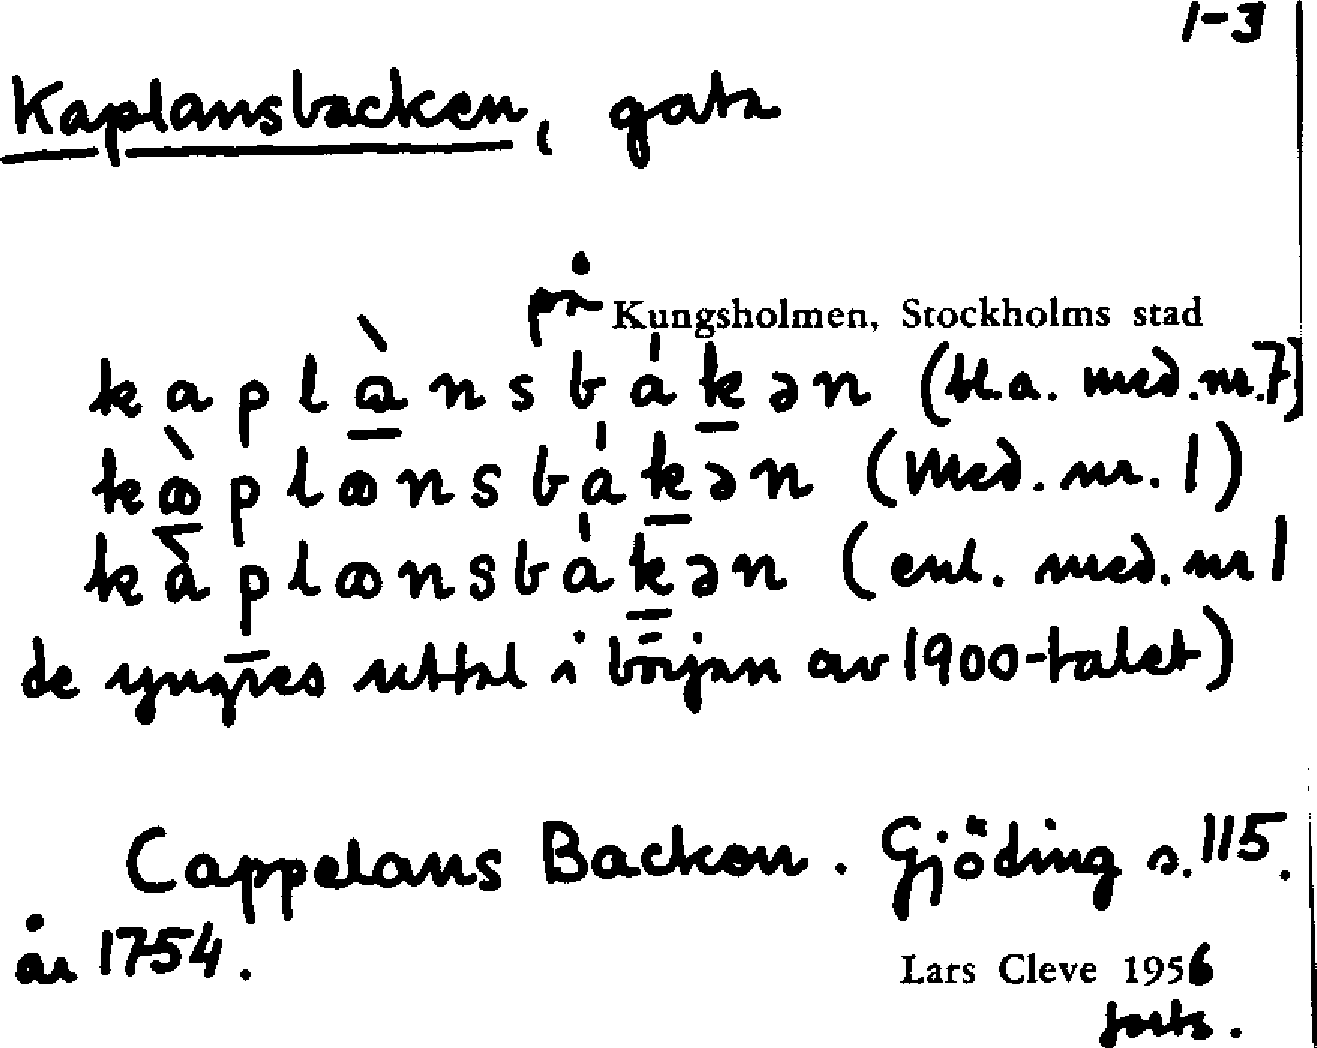 1-3
Kaplansbacken, gata
på Kungsholmen, Stockholms stad
kaplɑ̀nsbákən (bl.a. med.nr.7)
kɑ̀plɑnsbákən (Med. nr. 1)
kàplɑnsbákən (enl. med. nr 1
de yngres uttal i början av 1900-talet)
Cappelans Backen. Gjöding s. 115.
år 1754.
Lars Cleve 1956
forts.